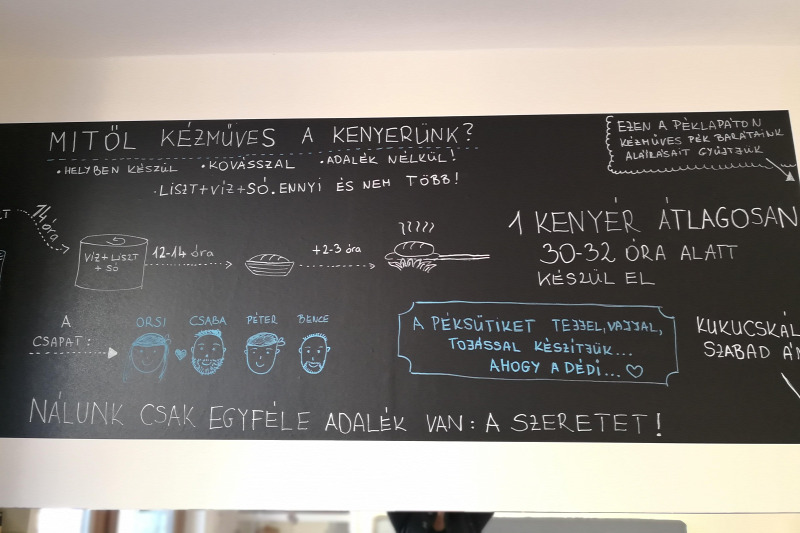 MITŐL KÉZMŰVES A KENYERÜNK?
• HELYBEN KÉSZÜL • KOVÁSSZAL • ADALÉK NÉLKÜL!
• LISZT+VÍZ+SÓ. ENNYI ÉS NEM TÖBB!
EZEN A PÉKLAPÁTON
KÉZMŰVES PÉK BARÁTAINK
ALÁÍRÁSAIT GYŰJTJÜK
14 óra
VÍZ+LISZT
+ SÓ
12-14 óra
+2-3 óra
1 KENYÉR ÁTLAGOSAN
30-32 ÓRA ALATT
KÉSZÜL EL
A
CSAPAT:
ORSI CSABA PÉTER BENCE
A PÉKSÜTIKET TEJJEL, VAJJAL,
TOJÁSSAL KÉSZÍTJÜK...
AHOGY A DÉDI...
KUKUCSKÁL
SZABAD
NÁLUNK CSAK EGYFÉLE ADALÉK VAN: A SZERETET!